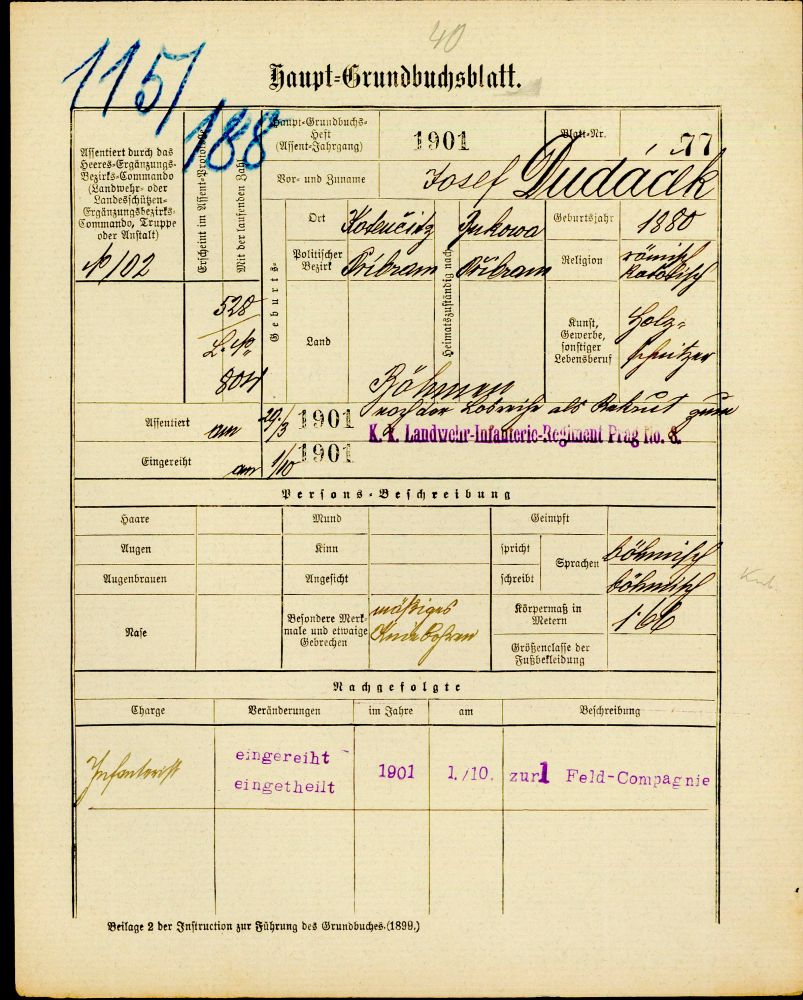 40
1151
188
Haupt-Grundbuchsblatt.
Assentiert durch das
Heeres-Ergänzungs-
Bezirks-Commando
(Landwehr- oder
Landesschützen-
Ergänzungsbezirks-
Commando, Truppe
oder Anstalt)
No 102
Erscheint im Assent-Protokolle
Mit der laufenden Zahl
528
L. No
Haupt-Grundbuchs-
Heft
(Assent-Jahrgang)
1901
Blatt-Nr.
77
Vor- und Zuname
Josef Dudáček
Geburts-
Ort
Heimatszuständig nach
Bukowa
Geburtsjahr
1880
Politischer
Bezirk
Přibram
Přibram
Religion
römisch
katolisch
Land
Böhmen
Kunst,
Gewerbe,
sonstiger
Lebensberuf
Holz-
schnitzer
Assentiert
am
29./3
1901
nach der Losreihe als Rekrut zum
K. k. Landwehr-Infanterie-Regiment Prag No. 8.
Eingereiht
am
1/10
1901
Persons-Beschreibung
Haare
Mund
Geimpft
Augen
Kinn
spricht
Sprachen
böhmisch
Augenbrauen
Angesicht
schreibt
böhmisch
Nase
Besondere Merk-
male und etwaige
Gebrechen
mäßiges
Körpermaß in
Metern
1·66
Größenclasse der
Fußbekleidung
Nachgefolgte
Charge
Veränderungen
im Jahre
am
Beschreibung
Infanterist
eingereiht
eingetheilt
1901
1./10.
zur 1 Feld-Compagnie
Beilage 2 der Instruction zur Führung des Grundbuches. (1899.)